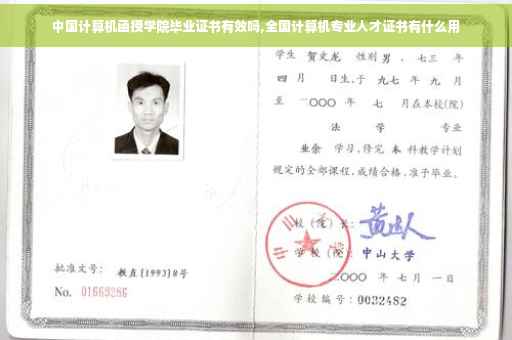 中国计算机函授学院毕业证书有效吗,全国计算机专业人才证书有什么用
学生 贺文龙 性别 男 、七三 年
四 月 日生,于 九七 年 九 月
至 二〇〇〇 年 七 月在本校(院)
法 学 专业
业余 学习,修完 本 科教学计划
规定的全部课程,成绩合格,准予毕业。
校(院)长:
学校(院):中山大学
二〇〇〇 年 七 月 一 日
学校编号:0032482
批准文号: 教直[1993]8号
No. 01669286